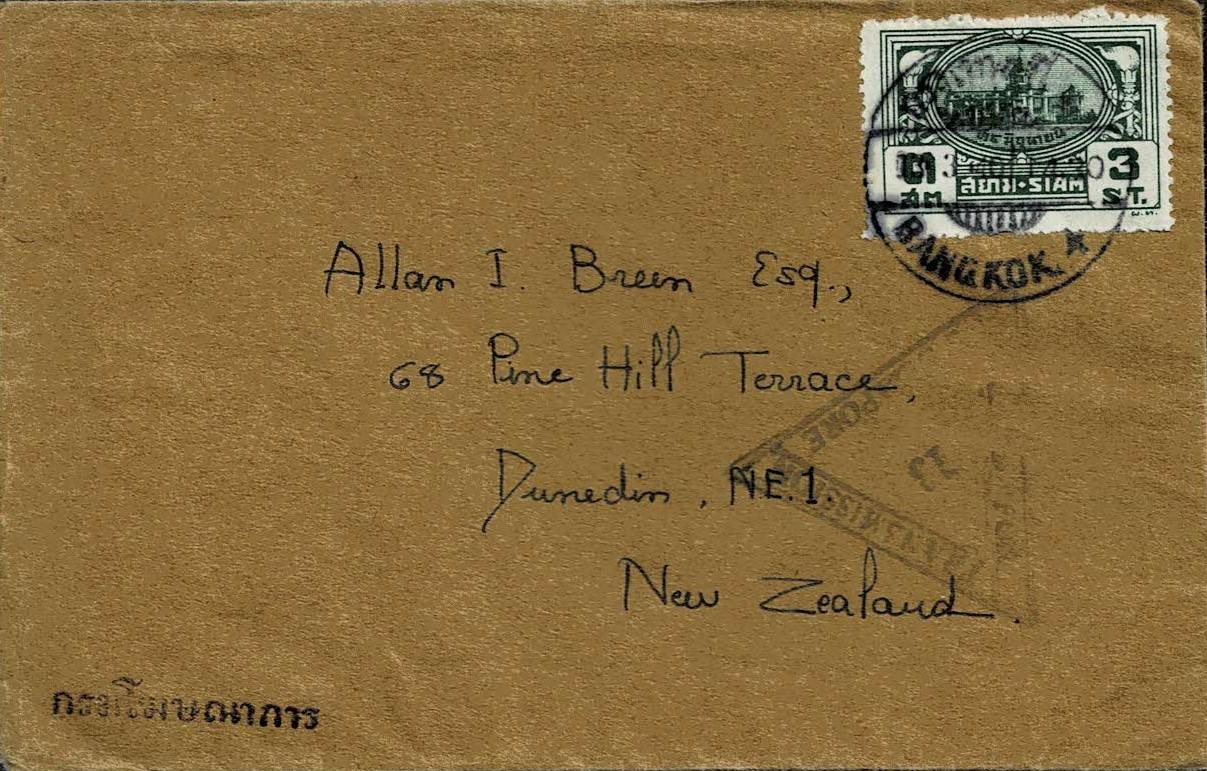 ๒๔ มิถุนายน
๓ สยาม·SIAM 3
สต. ST.
BANGKOK.
Allan I. Breen Esq.,
68 Pine Hill Terrace,
Dunedin, N.E.1.
New Zealand.
PORE
13
กรมโฆษณาการ